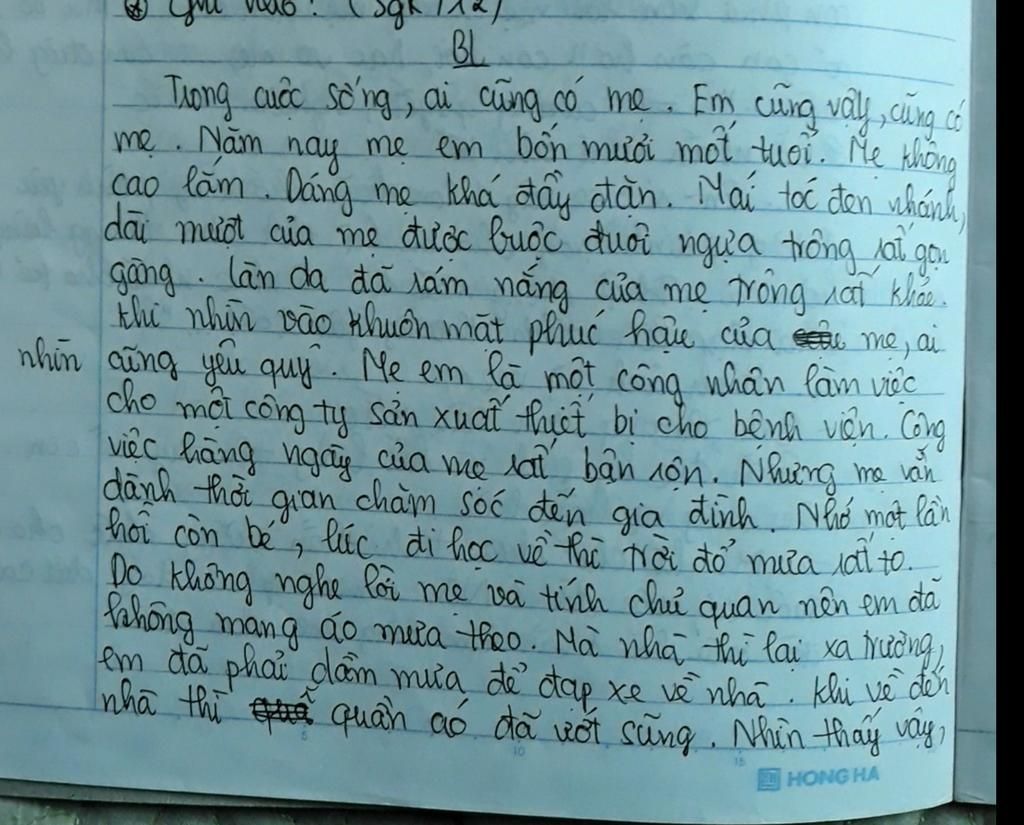 Ghi nào? (Sgk/112)
BL
Trong cuộc sống, ai cũng có mẹ. Em cũng vậy, cũng có
mẹ. Năm nay mẹ em bốn mươi mốt tuổi. Mẹ không
cao lắm. Dáng mẹ khá đầy đặn. Mái tóc đen nhánh,
dài mượt của mẹ được buộc đuôi ngựa trông rất gọn
gàng. Làn da đã rám nắng của mẹ trông rất khỏe.
Khi nhìn vào khuôn mặt phúc hậu của mẹ, ai
nhìn cũng yêu quý. Mẹ em là một công nhân làm việc
cho một công ty sản xuất thiết bị cho bệnh viện. Công
việc hàng ngày của mẹ rất bận rộn. Nhưng mẹ vẫn
dành thời gian chăm sóc đến gia đình. Nhớ một lần
hồi còn bé, lúc đi học về thì trời đổ mưa rất to.
Do không nghe lời mẹ và tính chủ quan nên em đã
không mang áo mưa theo. Mà nhà thì lại xa trường,
em đã phải dầm mưa để đạp xe về nhà. Khi về đến
nhà thì quần áo đã ướt sũng. Nhìn thấy vậy,
HONG HA